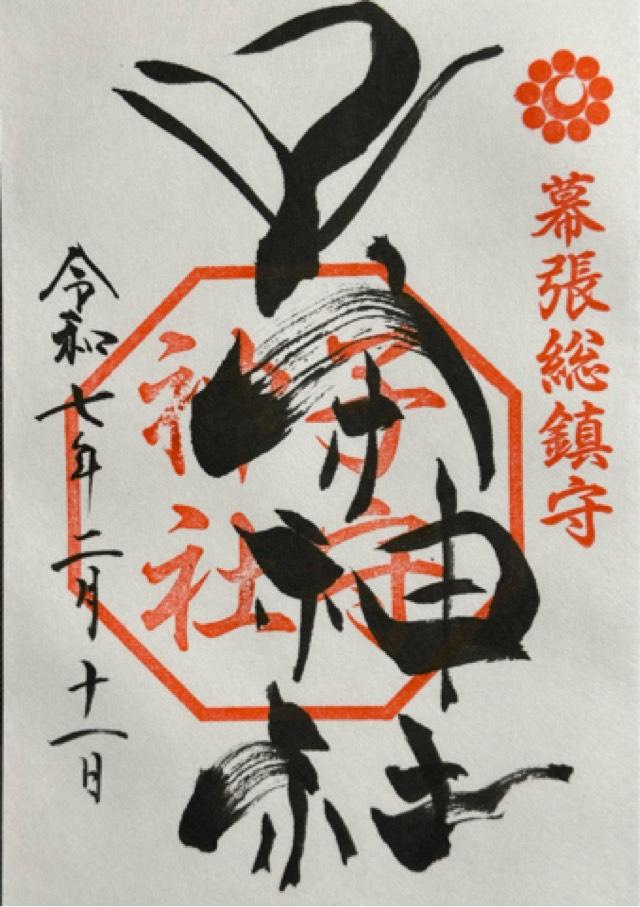 幕張総鎮守
子守
神社
子守神社
令和七年二月十一日